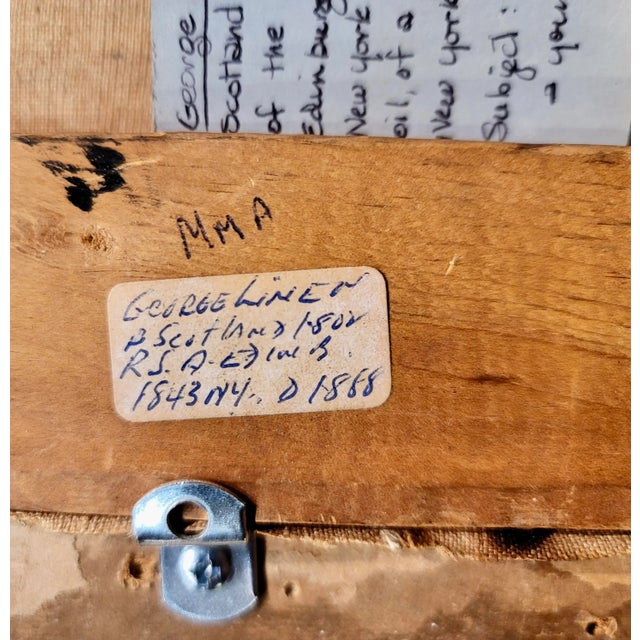 George
Scotland
of the
Edinburg
New York
oil, of a
New York
Subject:
→ you
MMA
GEORGE LINEN
B SCOTLAND 1802
R.S.A. EDINB.
1843 NY. D 1888